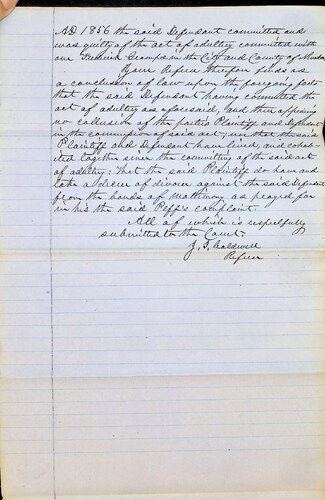 AD 1856 the said Defendant committed and
was guilty of the act of adultery committed with
one Fredrick Cramps in the City and County of
Your Referee therefore finds as
a conclusion of law upon the foregoing facts
that the said Defendant having committed the
act of adultery as aforesaid, and there appearing
no collusion of the parties Plaintiff and Defendant
in the commission of said act, nor that the said
Plaintiff and Defendant have lived, and cohab-
ited together since the committing of the said act
of adultery: that the said Plaintiff do have and
take a decree of divorce against the said Defendant
from the bonds of Matrimony as prayed for
in his the said Plff's complaint.
All of which is respectfully
submitted to the Court.
J. P. Caldwell
Referee